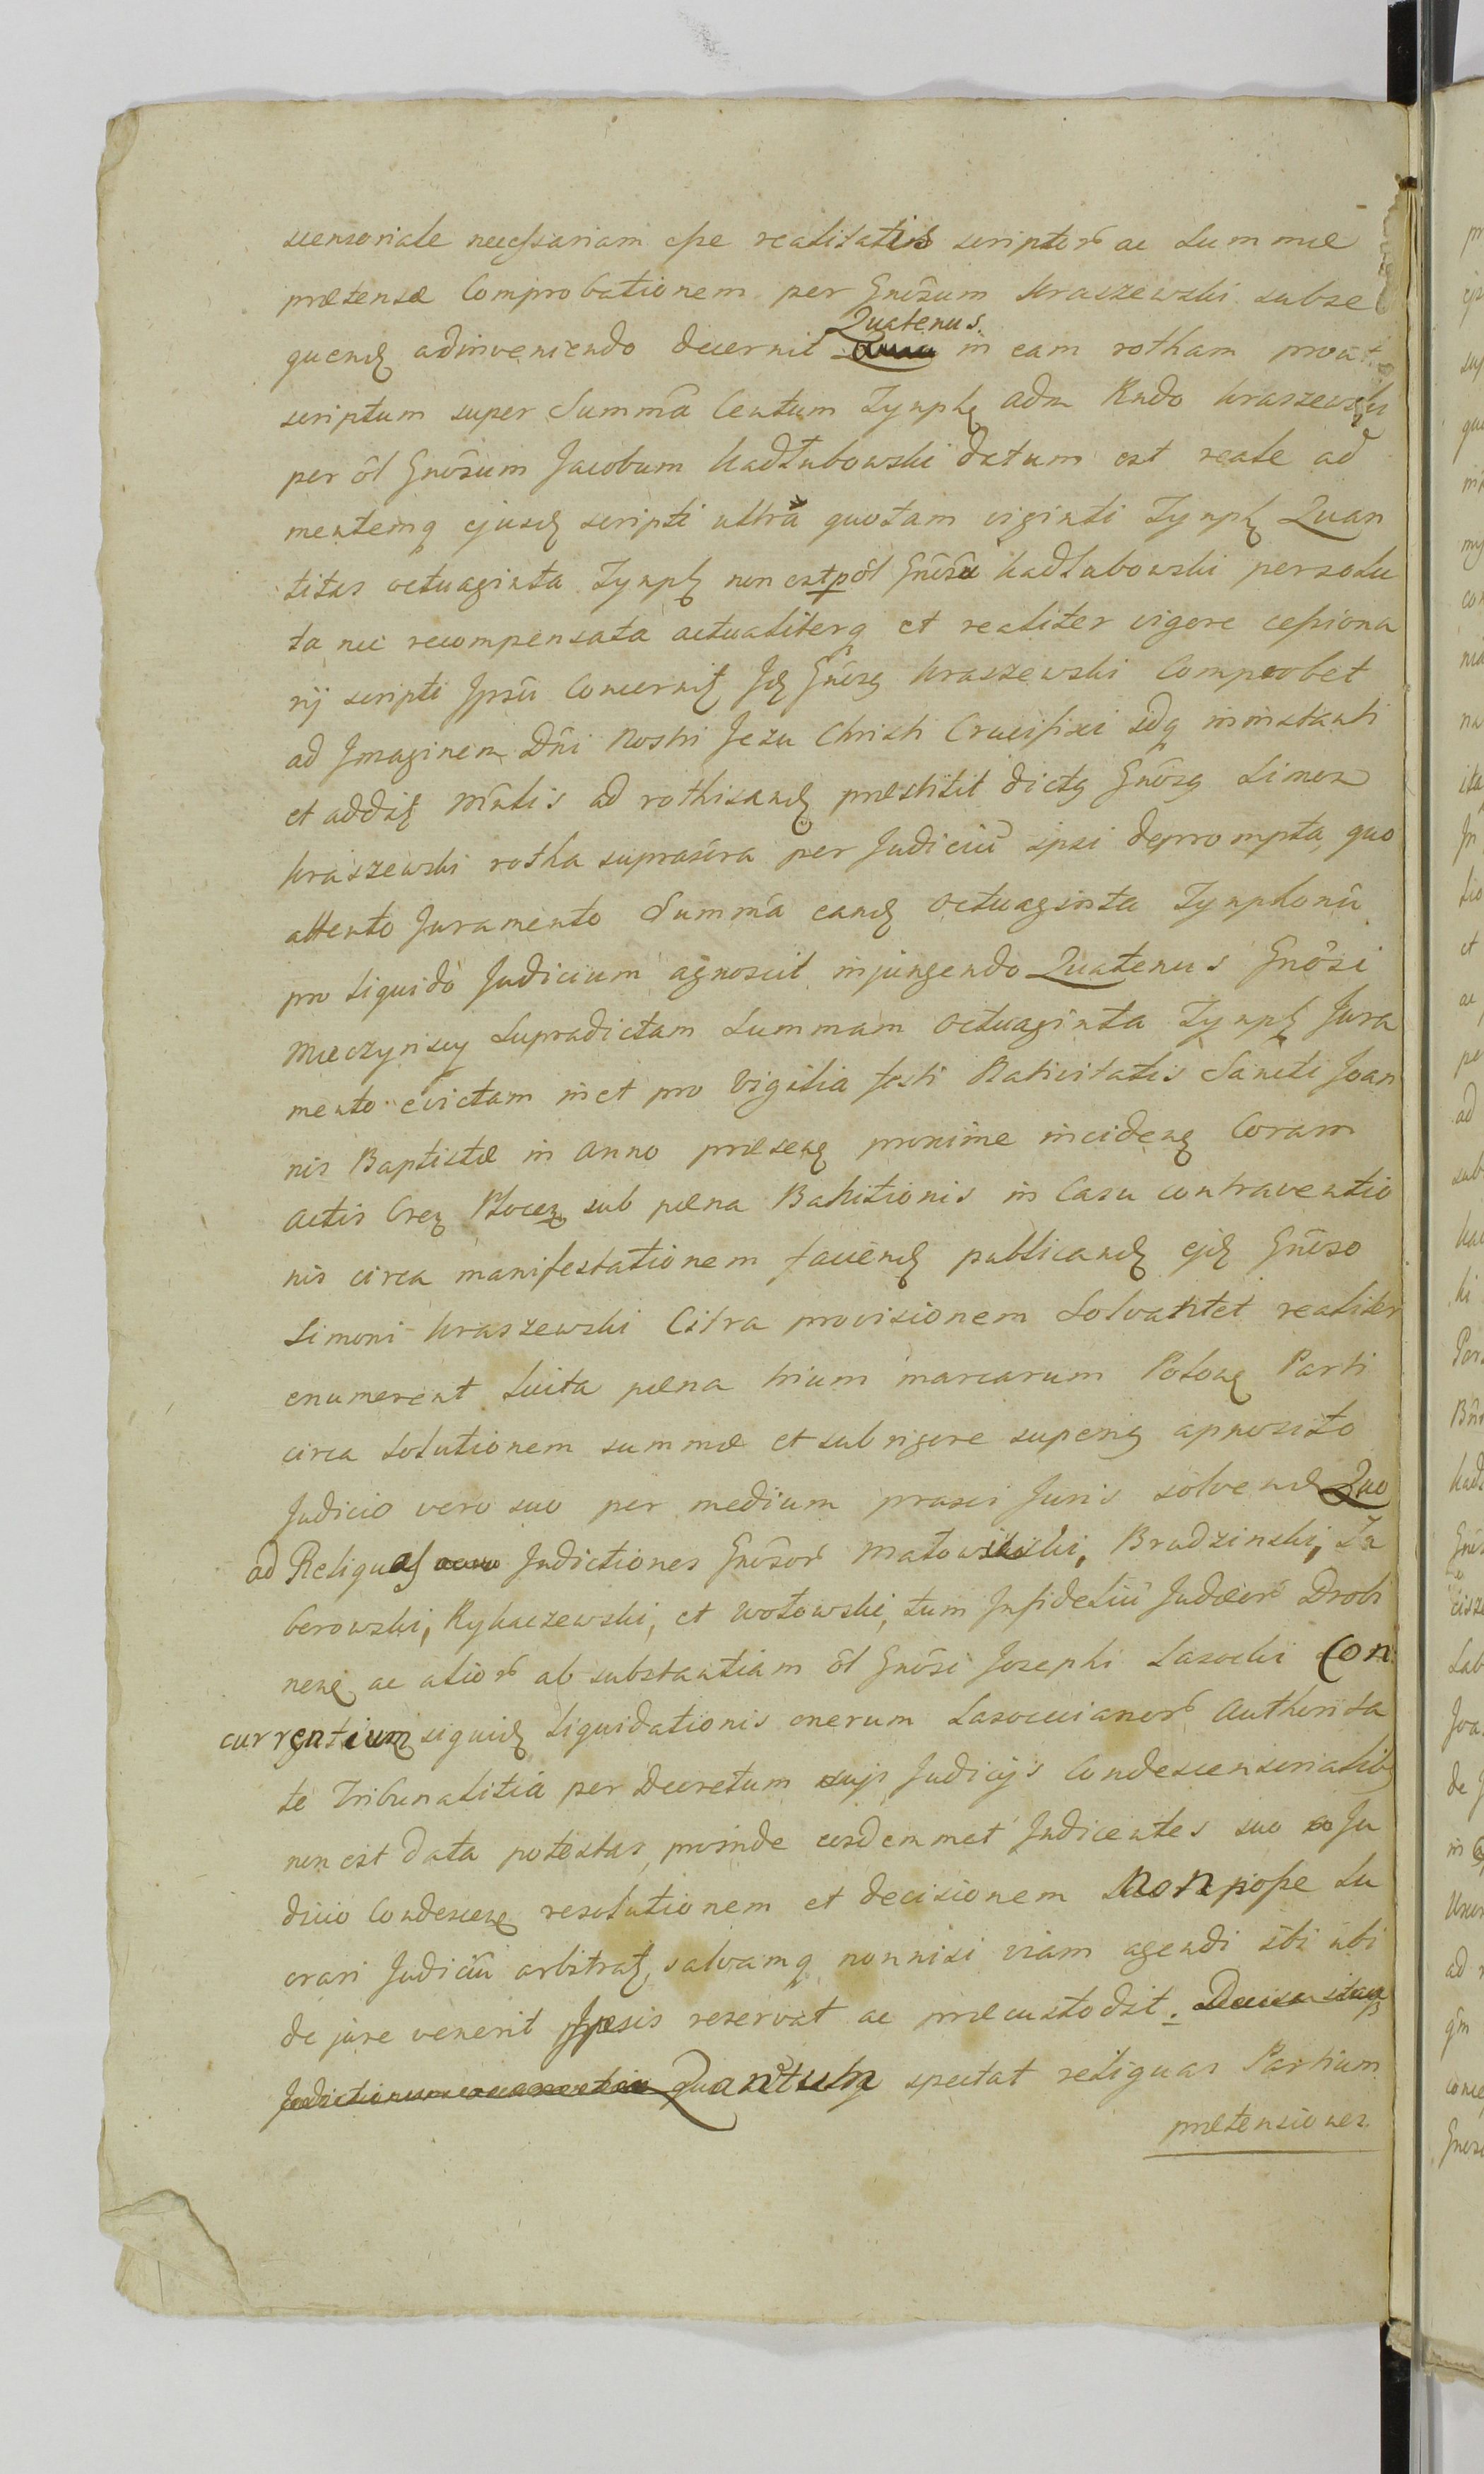 scensoriale necessariam esse realitatis scriptorũ ac Summæ
prætensæ Comprobationem per Gnõsum Kraszewski subse
quenđ adinveniendo decernit Quatenus in eam rotham prout
scriptum super Summã Centum Tynph adm Rndo Kraszewski
per ol Gnõsum Jacobum Kadłubowski datum est reale ad
mentemq ejusd scripti ultra quotam viginti Tynph Quan
titas octuaginta Tynph non est p ol Gnõsũ Kadłubowski persolu
ta nec recompensata actualiterq et realiter vigore cessiona
rij scripti Jpsũ Concernit Jd Gnõsq Kraszewski Comprobet
ad Jmaginem Dñi Nostri Jesu Christi Crucifixi idq in instanti
et addit Mñtis ad rothisand præstitit dictq Gnõsq Simon
Kraszewski rotha suprascra per Judiciũ ipsi deprompta, quo
attento Juramento Summã eand octuaginta Tynphonũ
pro liquido Judicium agnoscit injungendo Quatenus Gnõsi
Mieczynscy Supradictam Summam octuaginta Tynph Jura
mento evictam in et pro Vigilia festi Nativitatis Sancti Joan
nis Baptistæ in Anno præsenq proxime incidenq Coram
Actis Crez Plocen sub pæna Banitionis in Casu contraventio
nis circa manifestationem faciend publicand ejd Gnõso
Simoni Kraszewski Citra provisionem Solvant et realiter
enumerent luita pæna trium marcarum Polonq Parti
circa solutionem summæ et sub rigore superiq apposito
Judicio vero suo per medium praxi Juris solvend Quo
ad Reliquas Judictiones Gnõsorũ Matowski, Brudzinski, Za
berowski, Rykaczewski, et Wotowski, tum Jnfideliũ Judæorũ Drobi
nenq ac aliorũ ab substantiam ol Gnõsi Josephi Lasocki Con
currentium siquid liquidationis onerum Lasoccianorũ Authorita
te Tribunalitia per Decretum sujs Judicijs Condescensorialibq
non est data potestas, proinde eosdemmet Judicentes suo Ju
dicio Condescenq resolutionem et decisionem non posse Lu
crari Judiciũ arbitrat, salvamq nonnisi viam agendi ibi ubi
de jure venerit Jpsis reservat ac præcustodit.
Quantum spectat reliquas Partium
prætensiones.